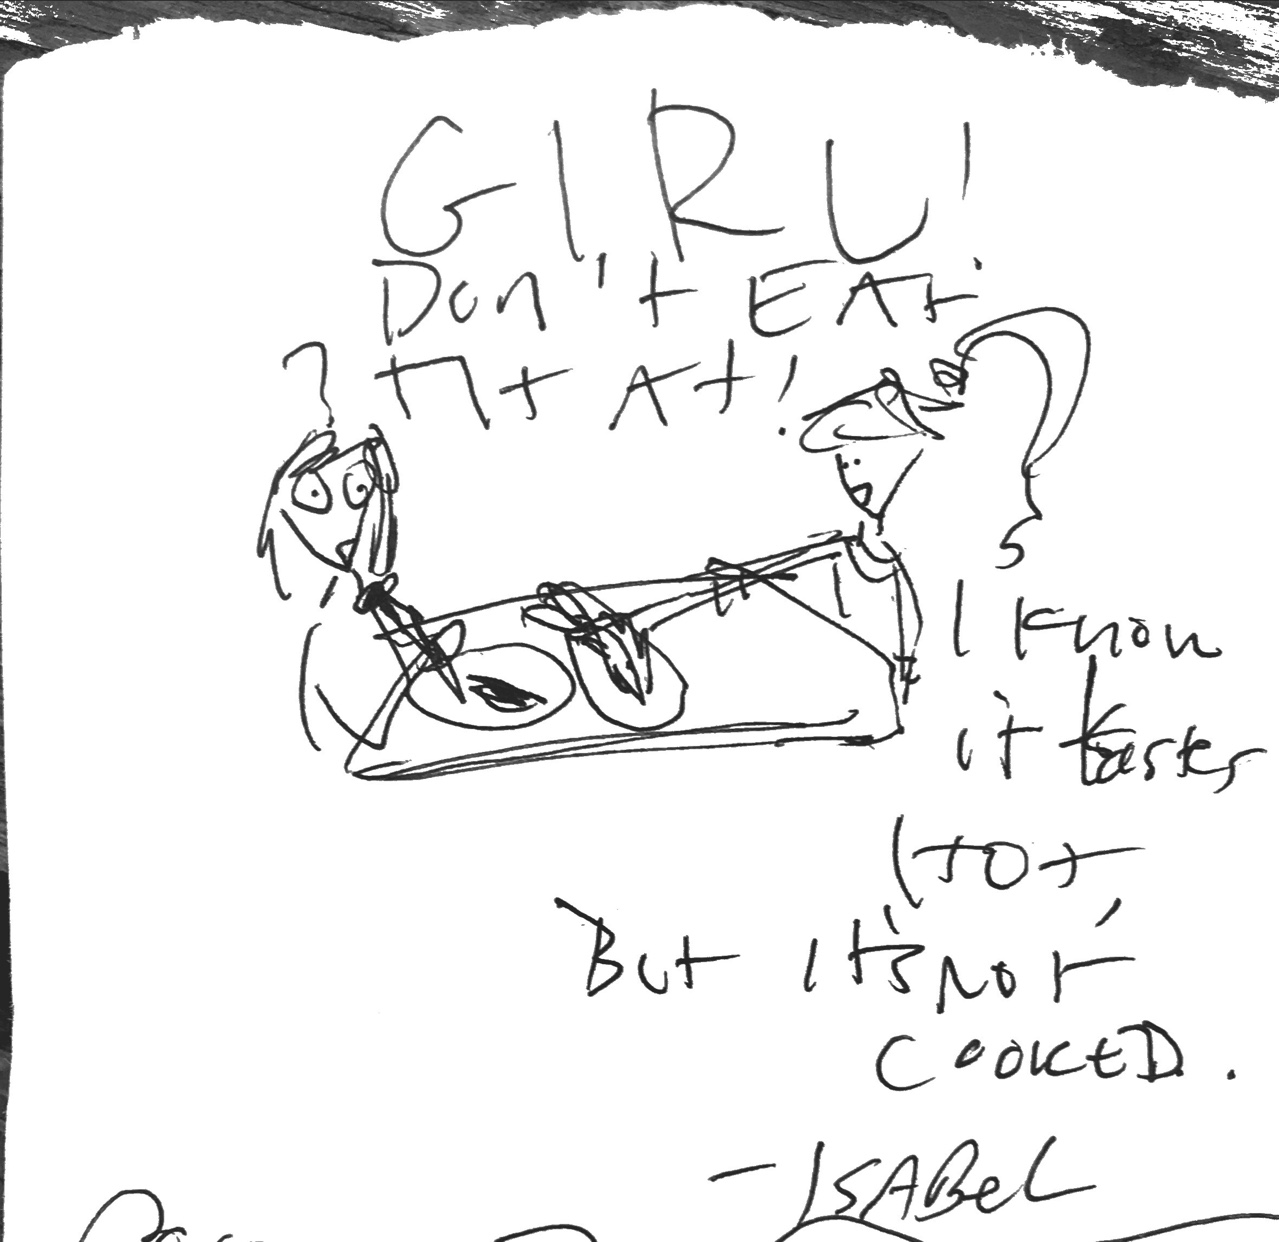 GIRU!
Don't EAt
tHAt!
?
I know
it tastes
HOt,
But it's Not
COOKED.
- ISABEL